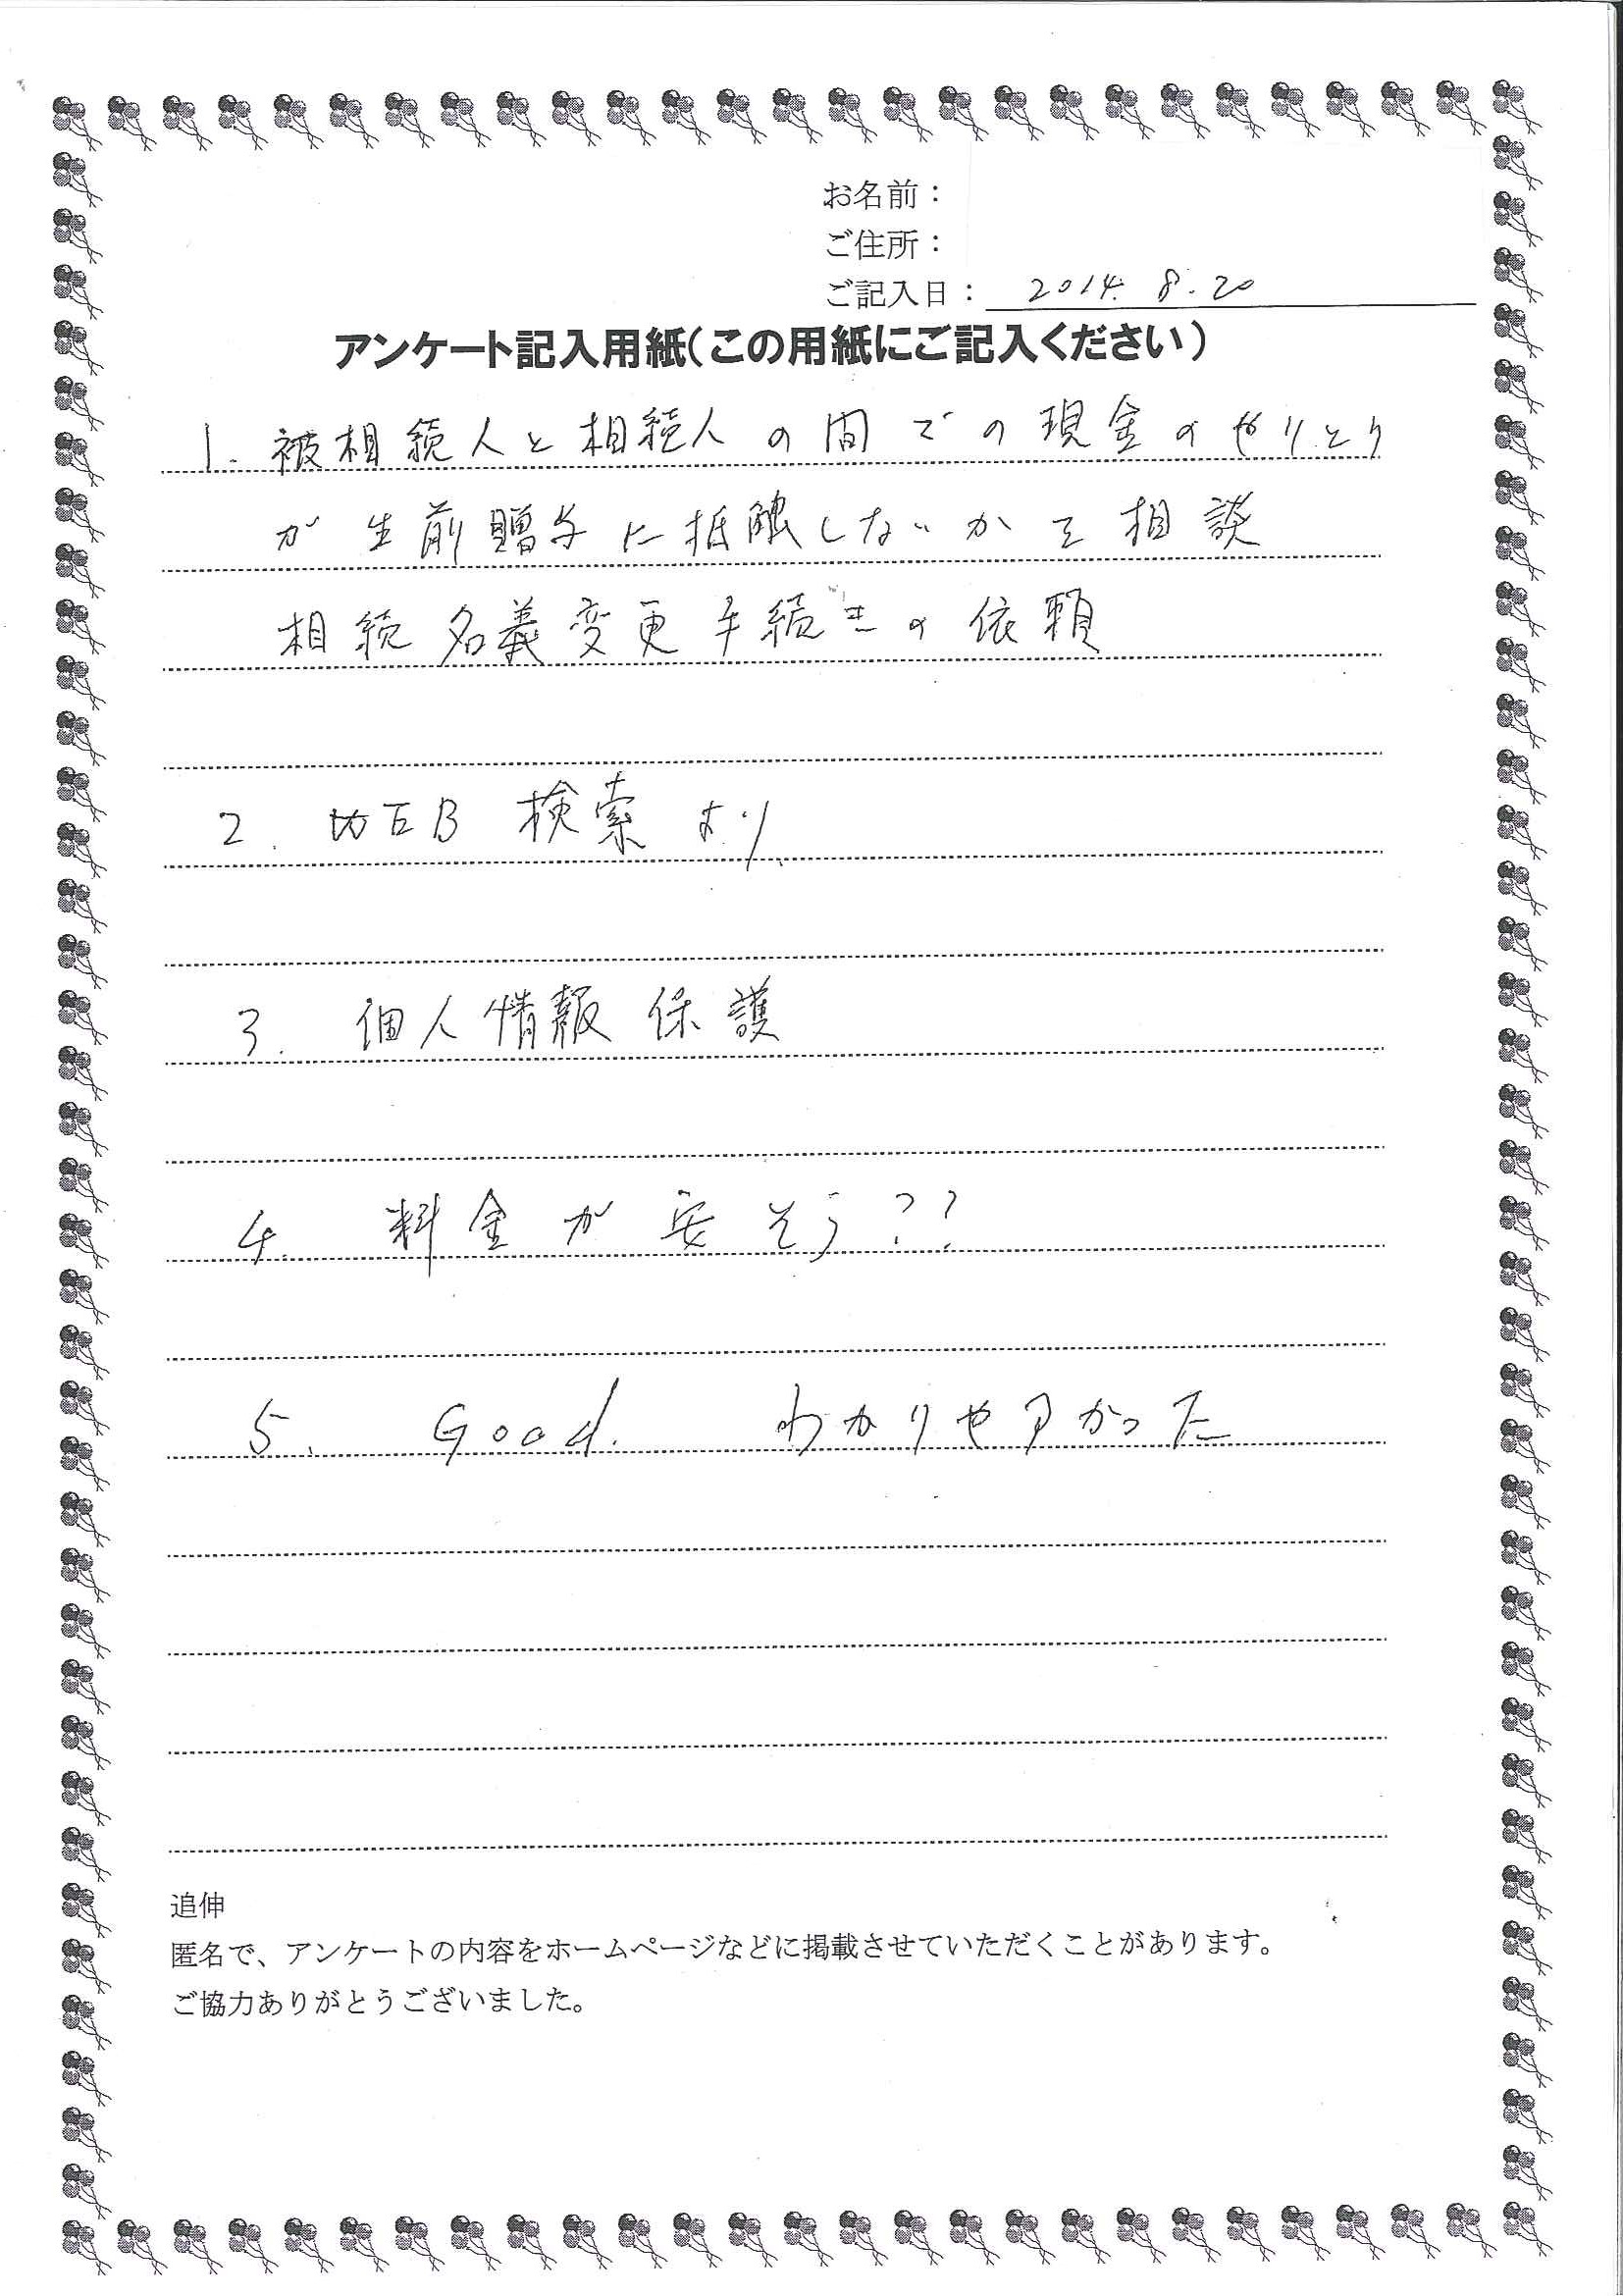 お名前：
ご住所：
ご記入日： 2014. 8. 20
アンケート記入用紙（この用紙にご記入ください）
1. 被相続人と相続人の間での現金のやりとり
が生前贈与に抵触しないかを相談
相続名義変更手続きの依頼
2. WEB 検索より
3. 個人情報保護
4. 料金が安そう??
5. Good. わかりやすかった
追伸
匿名で、アンケートの内容をホームページなどに掲載させていただくことがあります。
ご協力ありがとうございました。